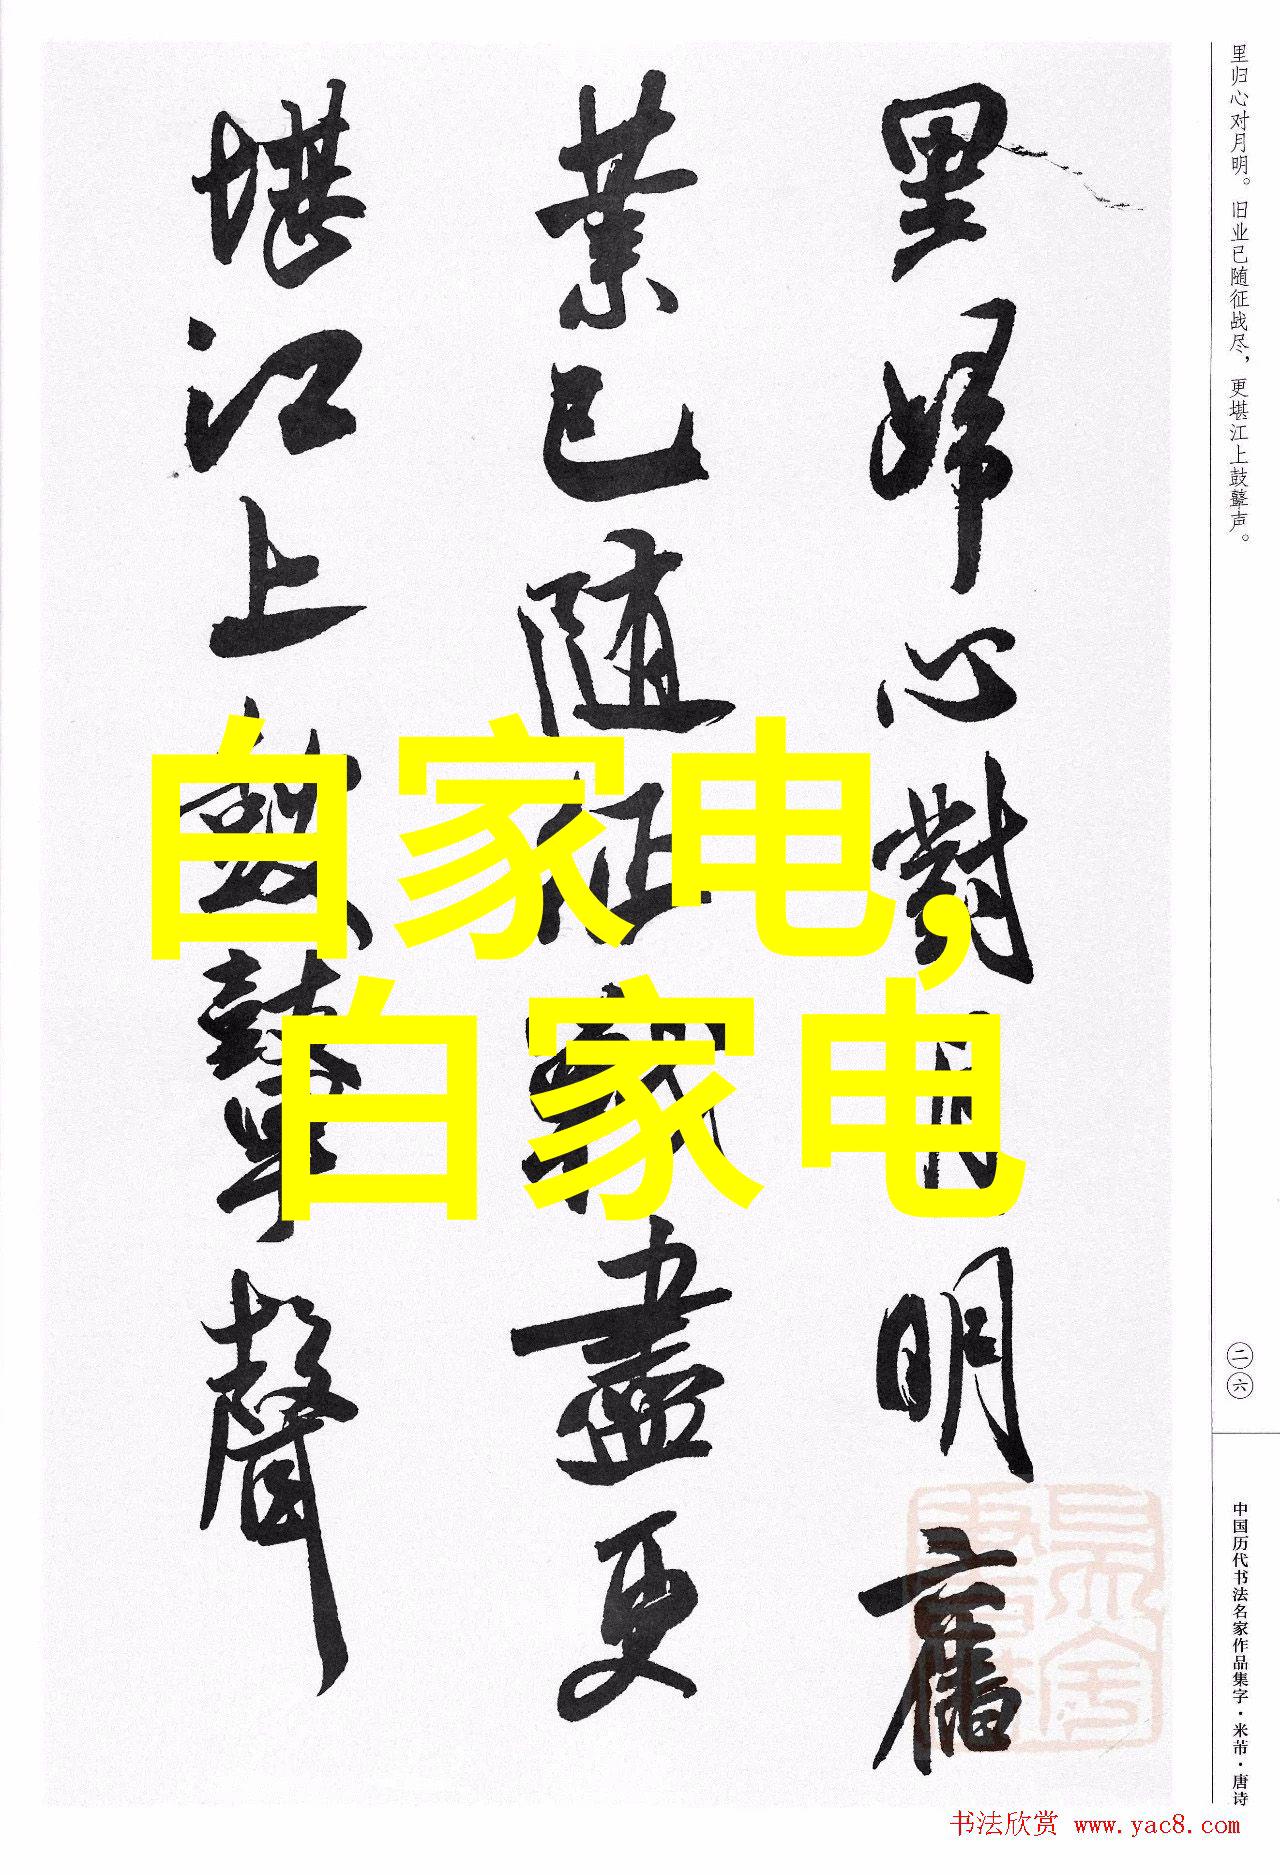 里归心对月明。旧业已随征战尽，更堪江上鼓鼙声。
二六
中国历代书法名家作品集字·米芾·唐诗
里歸心對月明舊
業已随征戰盡更
堪江上鼓鼙聲
白家电，
白家电
书法欣赏 www.yac8.com